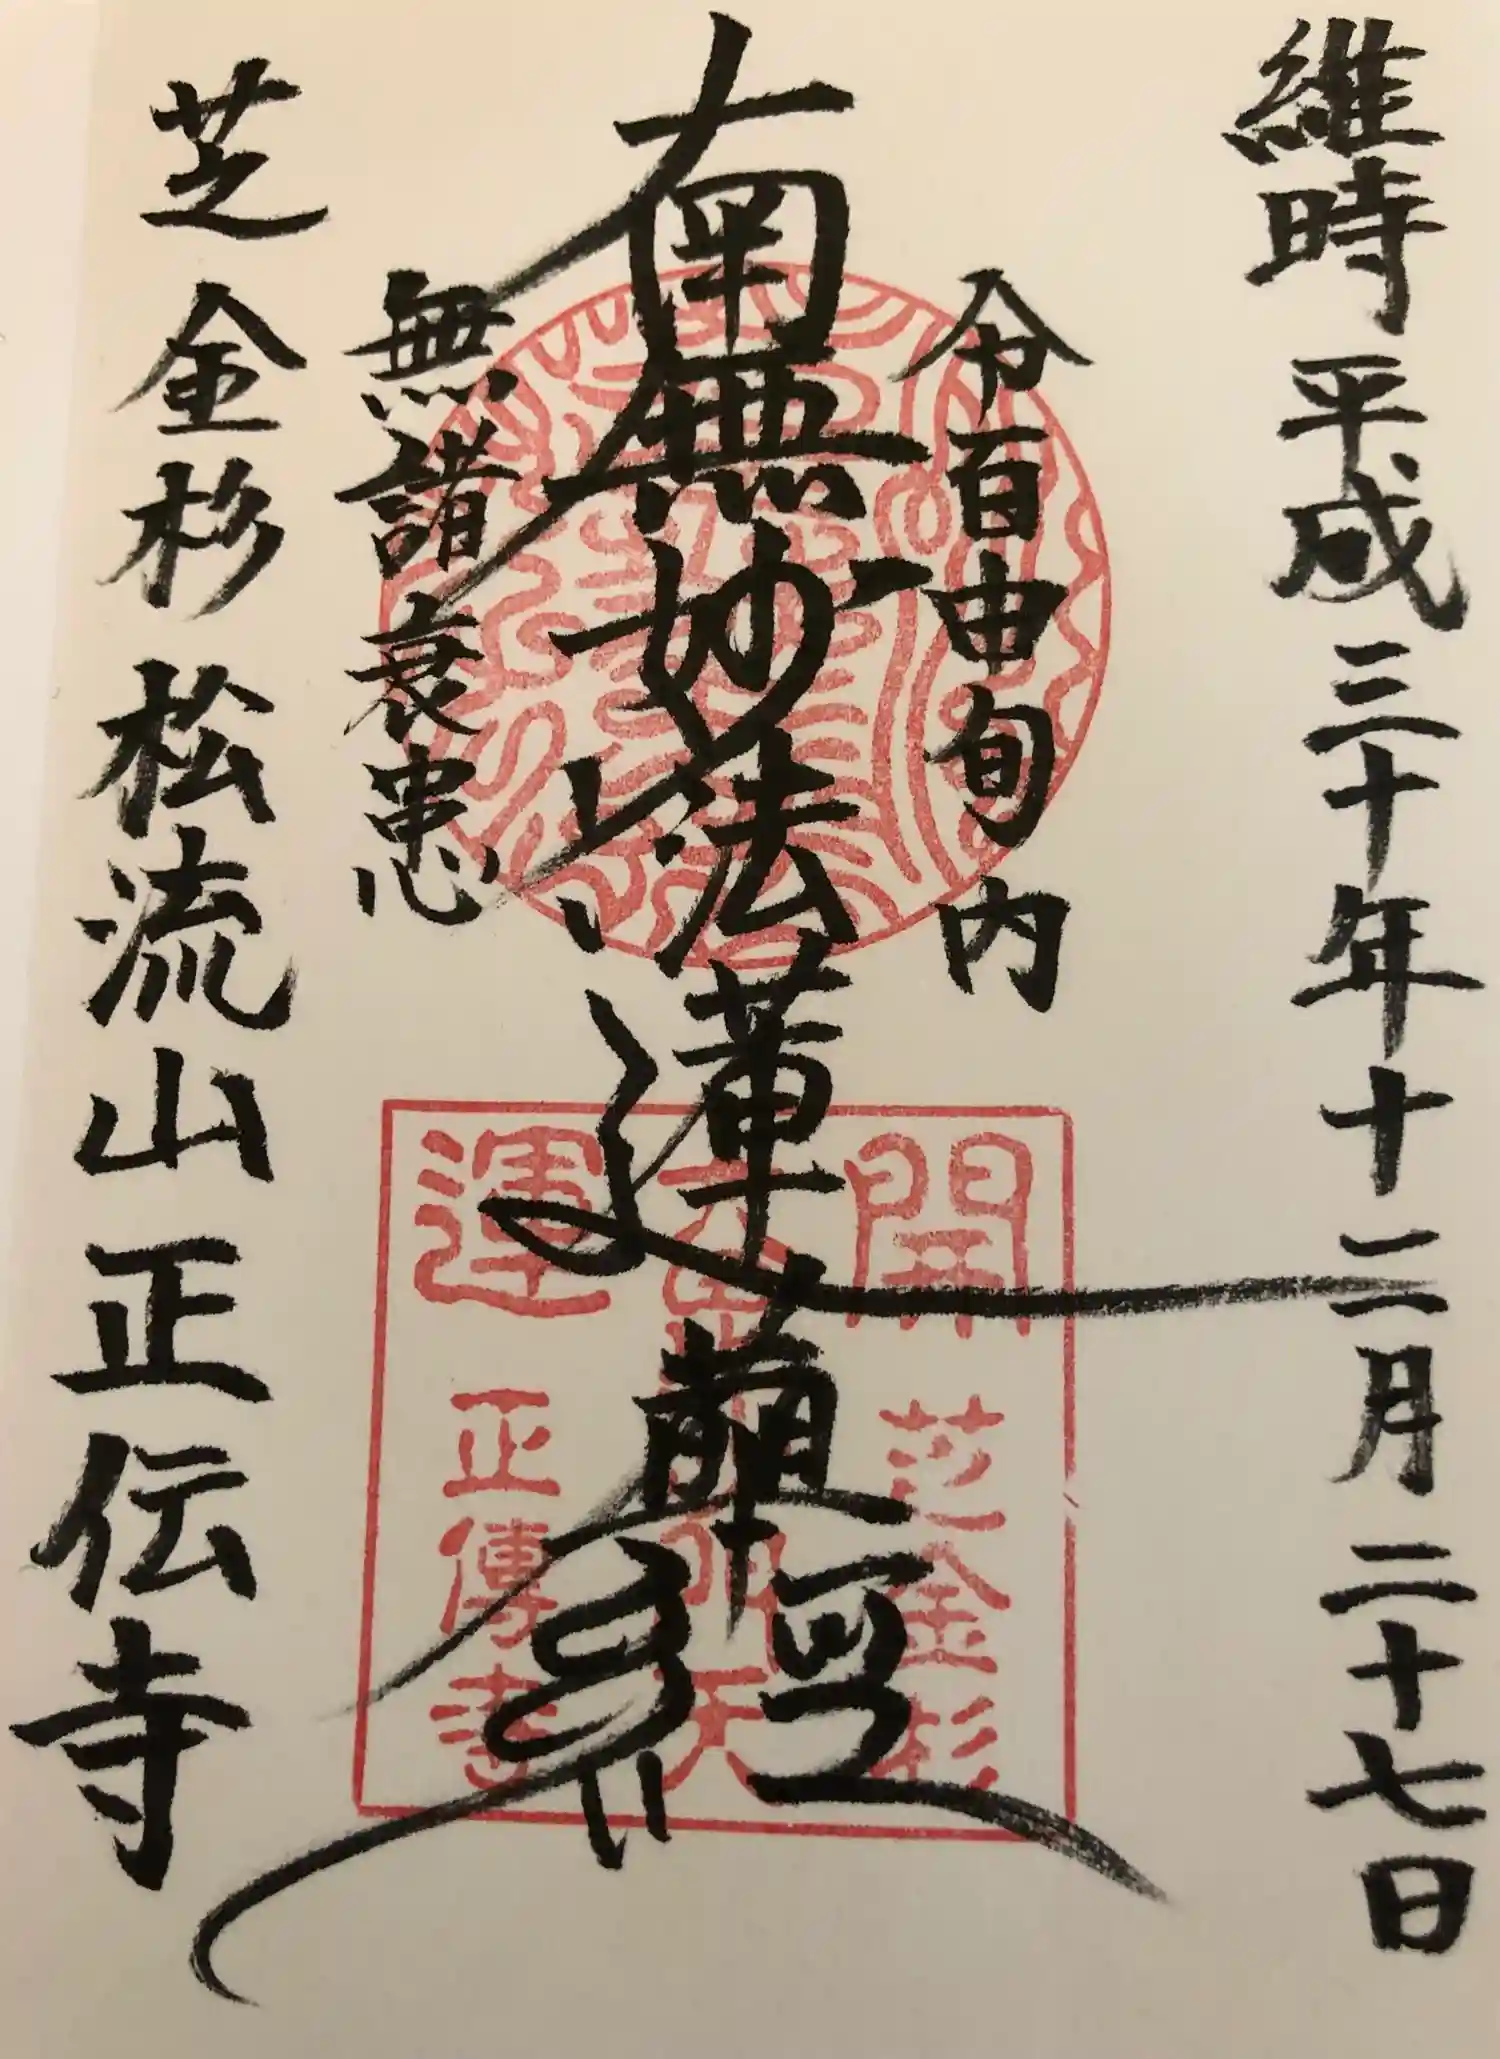 維時 平成三十年十二月二十七日
令百由旬内
南無妙法蓮華経
無諸衰患
芝金杉 松流山 正伝寺
開運
芝金杉
正傳寺